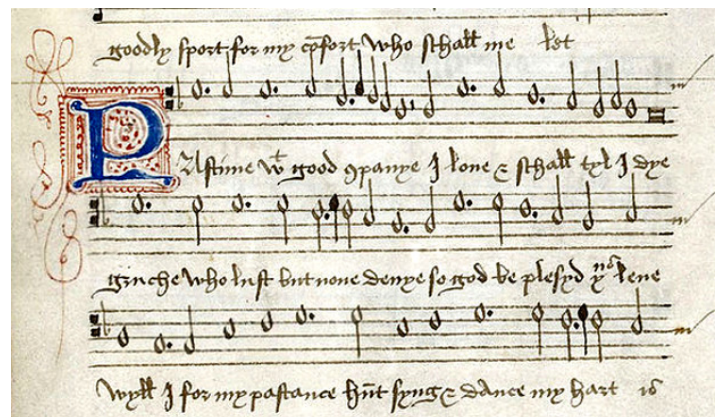 goodly sport for my cōfort who schall me let
PAstime wt good ꝯpanye I loue & schall tyl I dye
gruche who lust but none denye so god be plesyd yus leue
wyll I for my pastance hūt syng & dance my hart is